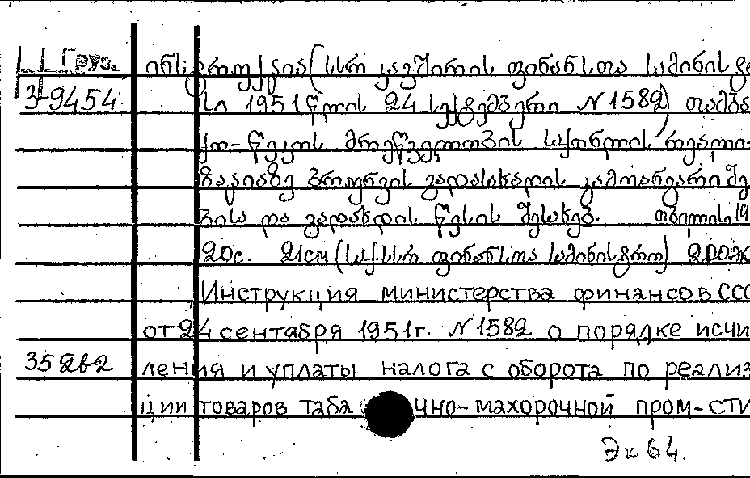 Груз. ინსტრუქცია (სსრ კავშირის ფინანსთა სამინისტ
3-9454 1951 წლის 24 სექტემბერი N1582) თამბა
წევის მრეწველობის საქონლის რეალი-
ზაციაზე ბრუნვის გადასახადის გამოანგარიშე
ბისა და გადახდის წესის შესახებ. თბილისი 19
20с. 21см (საქ სსრ ფინანსთა სამინისტრო)
Инструкция министерства финансов ССС
от 24 сентября 1951г. N1582 о порядке исчи
35262 ления и уплаты налога с оборота по реализ
ции товаров таба чно-махорочной пром-сти
Эк 64.